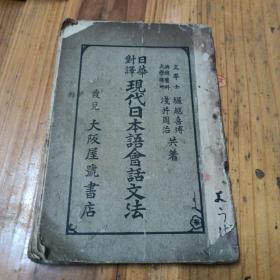 文學士 堀越喜博
淺井周治 共著
日華對譯
現代日本語會話文法
發兌 大阪屋號書店